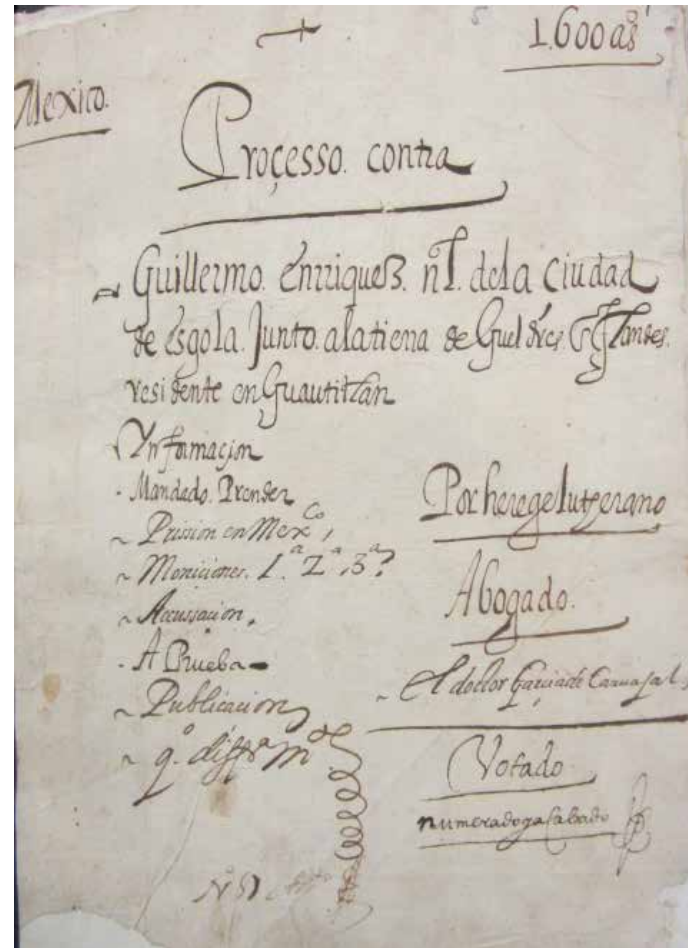 1.600 as
Mexico.
Proçesso. contra
Guillermo. Enrriquez. nl. de la Ciudad
de Esgola. Junto. ala tierra de Gueldres
residente en Guautitlan
Ynformaçion
Mandado. Prender
Prission en Mexco,
Moniciones. 1.a 2.a 3.a
Accussacion.
A Prueba
Publicacion
Por herege luterano
Abogado.
El doctor Garcia de Carvajal
Votado
numerado